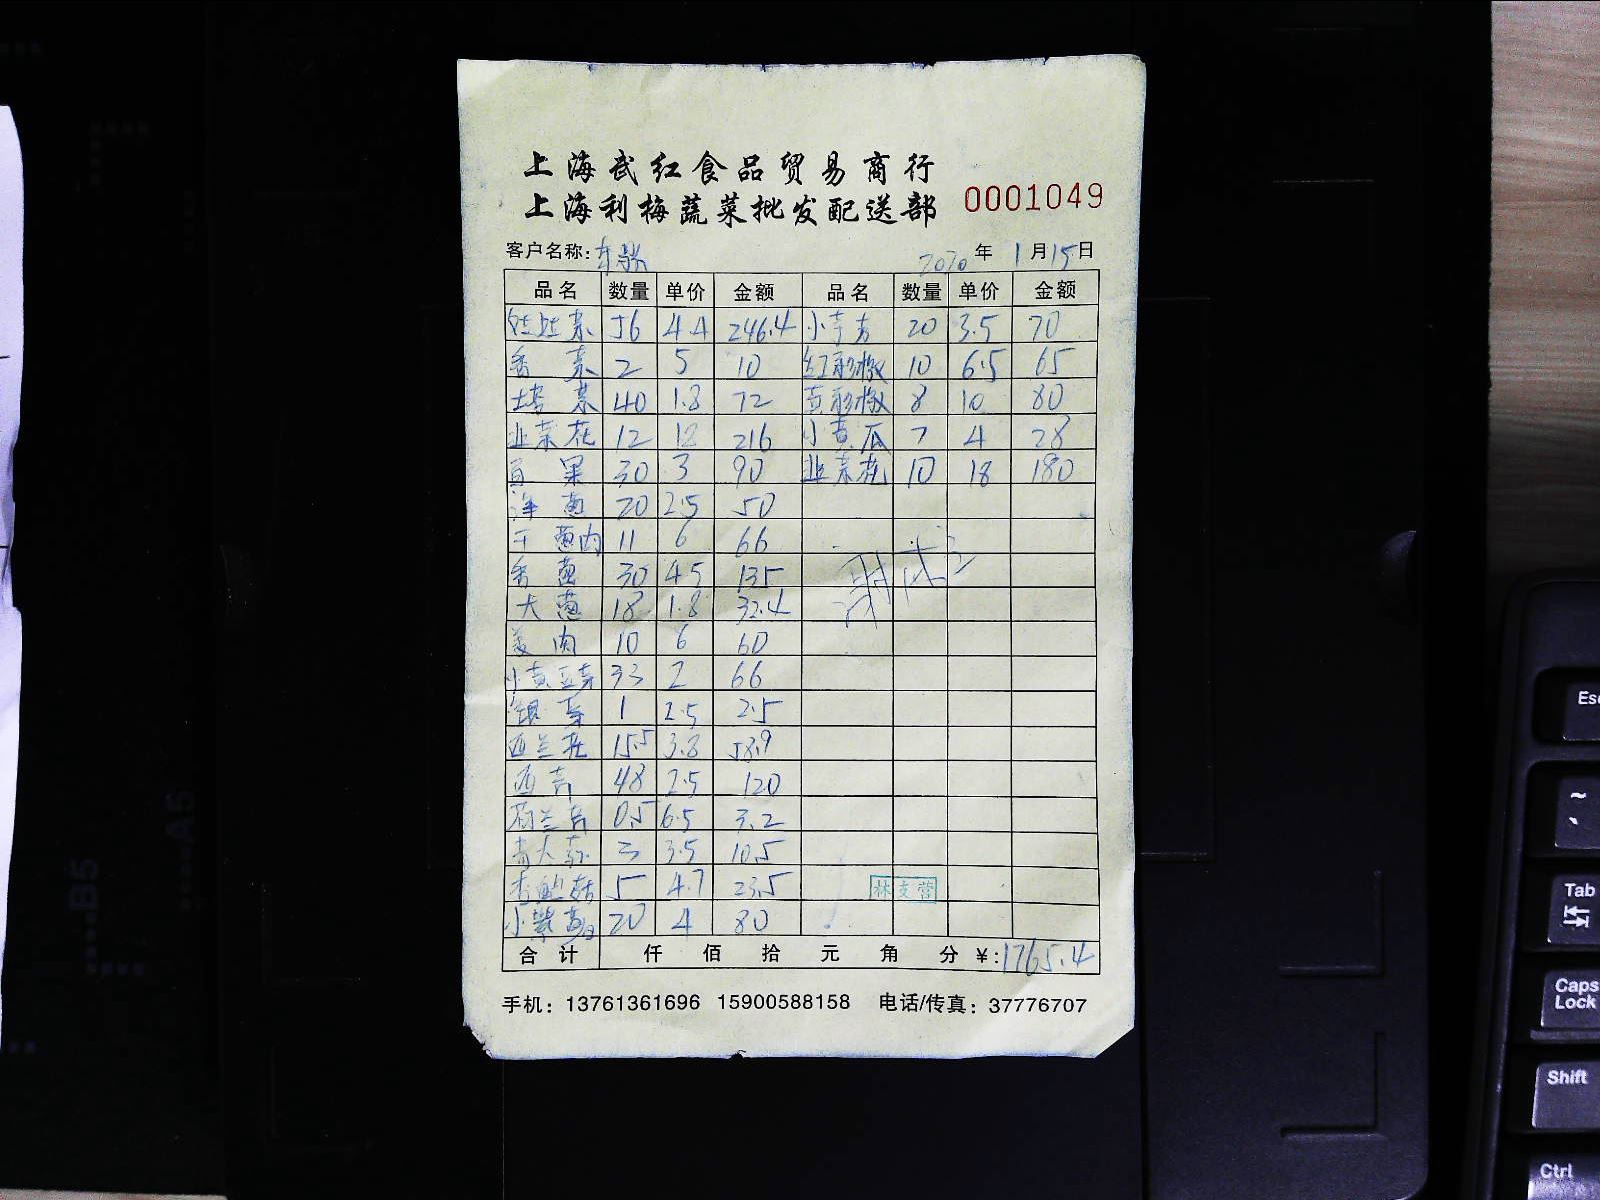 上海武红食品贸易商行
上海利梅蔬菜批发配送部 0001049
客户名称: 2020年1月15日
品名 数量 单价 金额 品名 数量 单价 金额
56 4.4 246.4 20 3.5 70
香菜 2 5 10 红彩椒 10 6.5 65
塔菜 40 1.8 72 黄彩椒 8 10 80
韭菜花 12 216 小黄瓜 7 4 28
30 3 90 韭菜花 10 18 180
洋葱 20 2.5 50
干葱肉 11 6 66
香葱 30 4.5 135
大葱 18 1.8 32.4
姜肉 10 6 60
小黄豆芽 33 2 66
银芽 1 2.5 2.5
西兰花 15.5 3.8 58.9
西芹 48 2.5 120
荷兰芹 0.5 6.5 3.2
青大蒜 3 3.5 10.5
5 4.7 23.5 林支营
20 4 80
合计 仟 佰 拾 元 角 分 ¥:1765.4
手机：13761361696 15900588158 电话/传真：37776707
B5
A5
Esc
~
Tab
Caps Lock
Shift
Ctrl